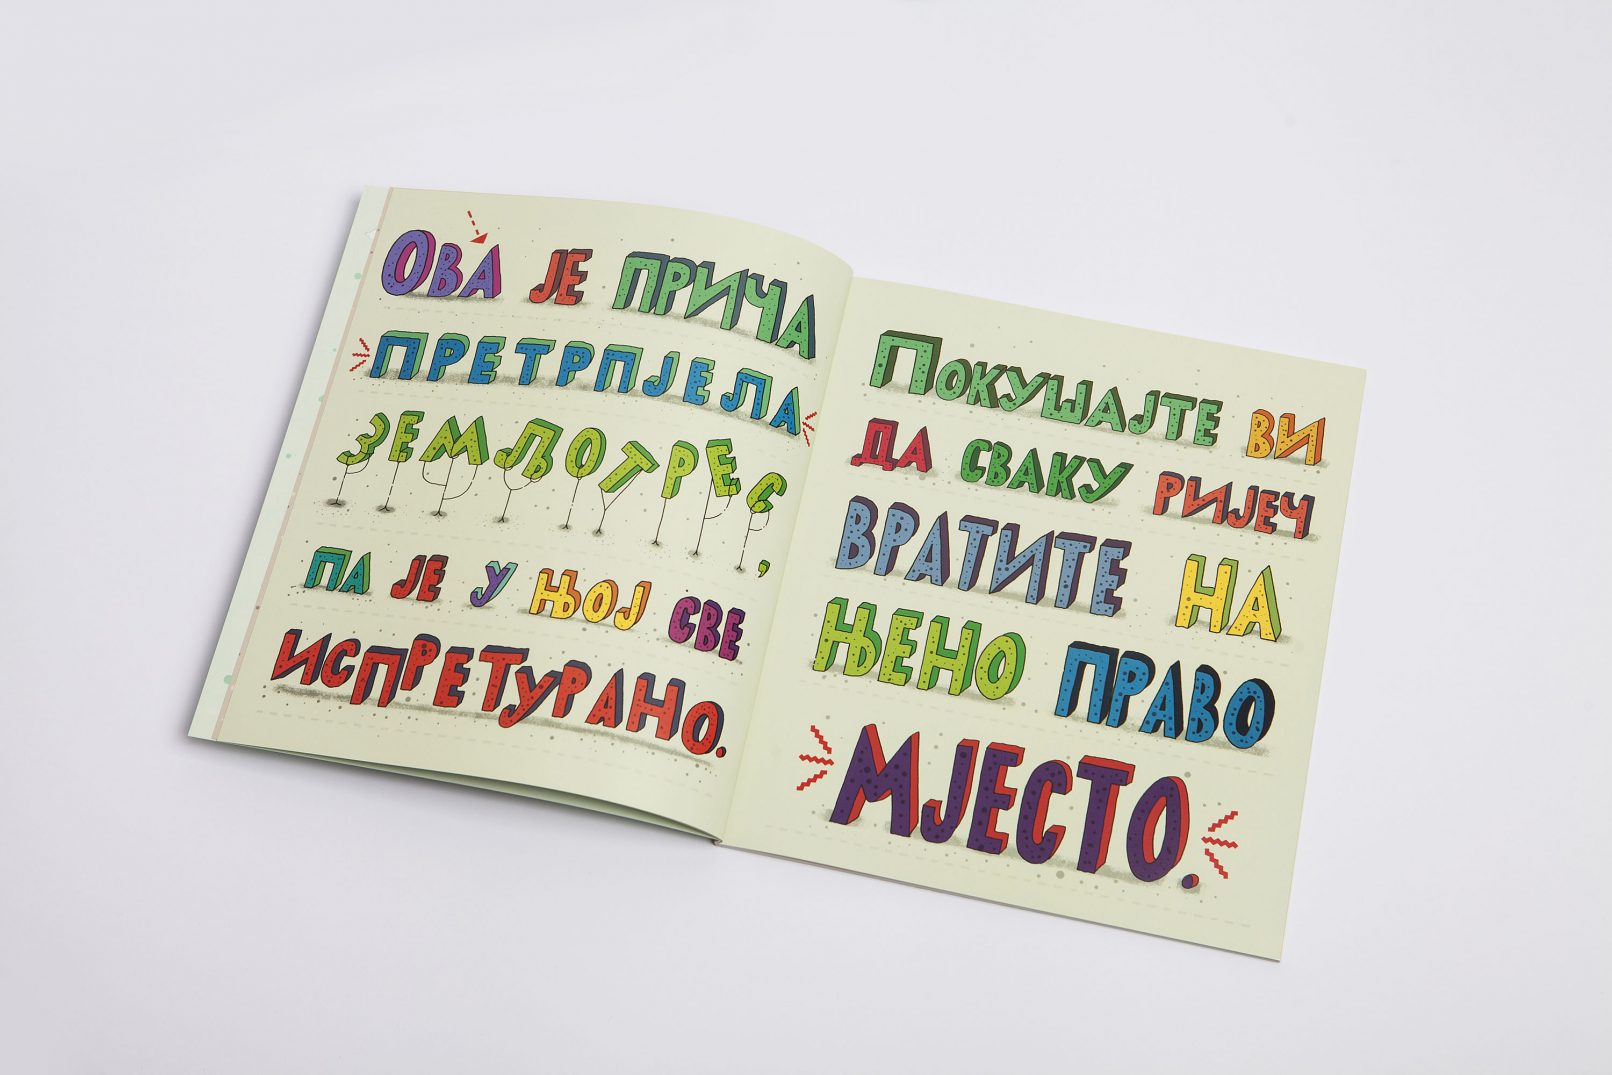 Ова је прича
претрпјела
земљотрес,
па је у њој све
испретурано.
Покушајте ви
да сваку ријеч
вратите на
њено право
мјесто.